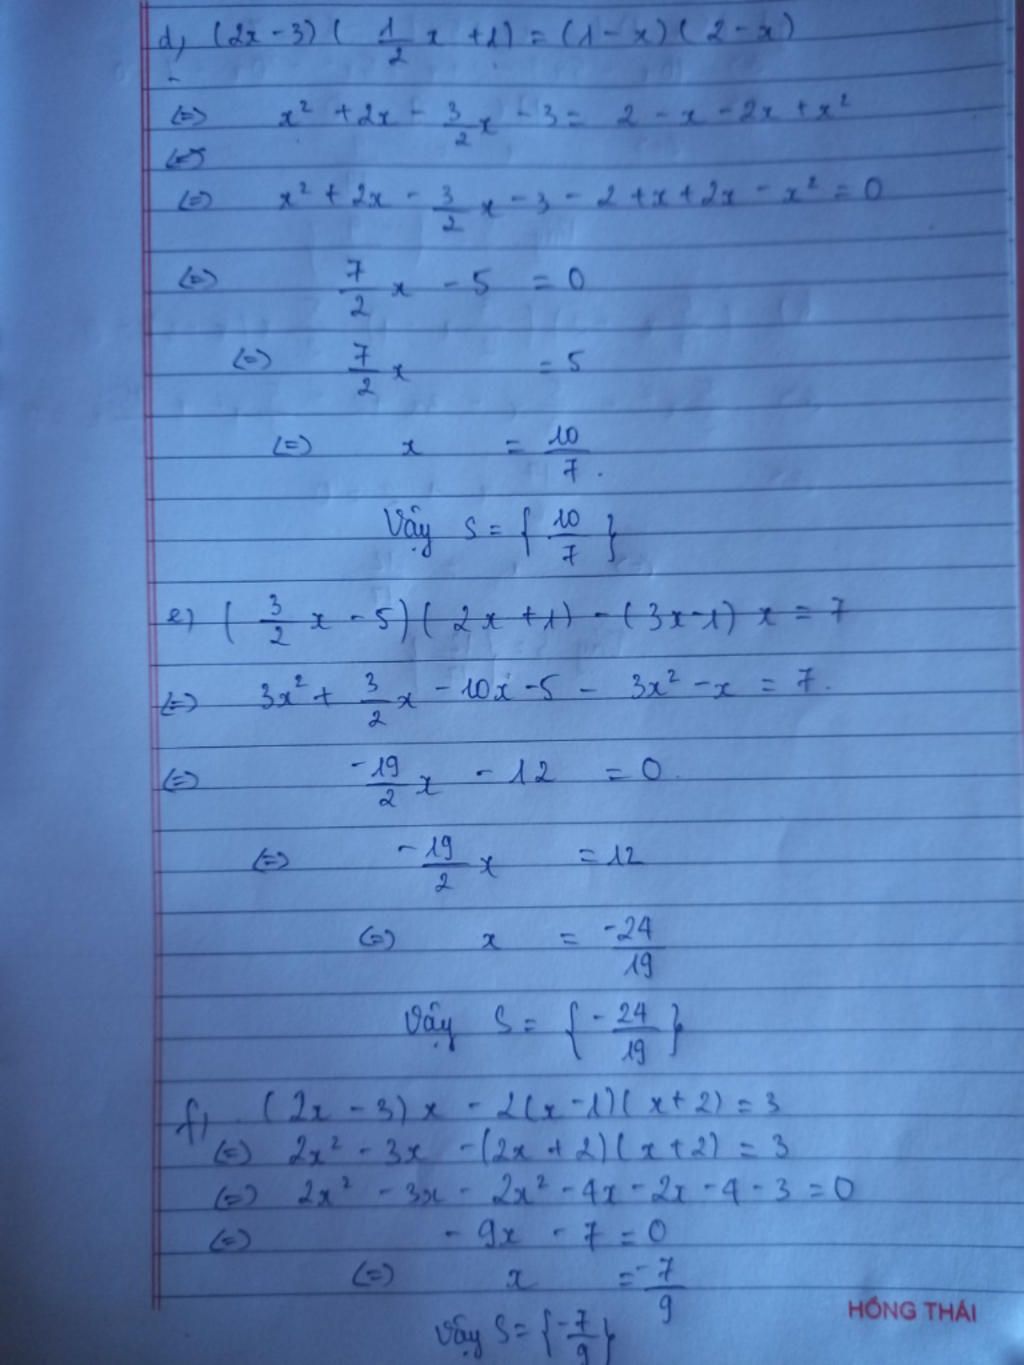 d) (2x - 3)( 1/2 x + 1) = (1 - x)( 2 - x)
(=) x² + 2x - 3/2 x - 3 = 2 - x - 2x + x²
(=)
(=) x² + 2x - 3/2 x - 3 - 2 + x + 2x - x² = 0
(=) 7/2 x - 5 = 0
(=) 7/2 x = 5
(=) x = 10/7 .
Vậy S = { 10/7 }
e) ( 3/2 x - 5)( 2x + 1) - (3x - 1) x = 7
(=) 3x² + 3/2 x - 10x - 5 - 3x² - x = 7.
(=) -19/2 x - 12 = 0.
(=) -19/2 x = 12
(=) x = -24/19
Vậy S = { -24/19 }
f) (2x - 3) x - 2(x - 1)( x + 2) = 3
(=) 2x² - 3x - (2x + 2)( x + 2) = 3
(=) 2x² - 3x - 2x² - 4x - 2x - 4 - 3 = 0
(=) - 9x - 7 = 0
(=) x = -7/9
Vậy S = { -7/9 }
HỒNG THÁI